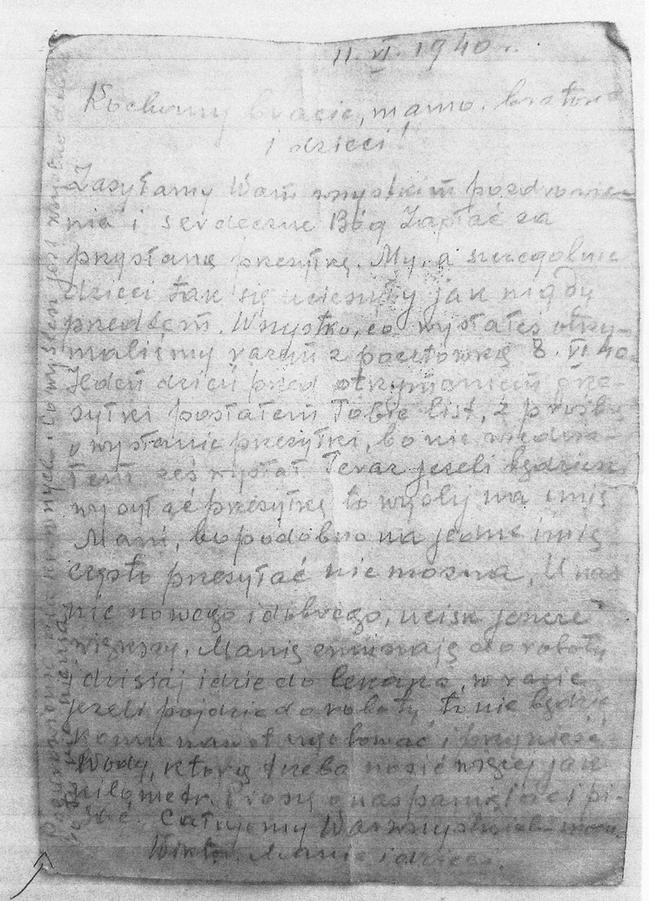 11. VI. 1940 r.
Kochany bracie, mamo, bratow
i dzieci!
Zasyłamy Wam wszystkim pozdrowie-
nia i serdeczne Bóg Zapłać za
przysłaną przesyłkę. My, a szczególnie
dzieci tak się ucieszyły jak nigdy
przedtem. Wszystko, co wysłałeś otrzy-
maliśmy razem z pocztówką 8. VI 40.
Jeden dzień przed otrzymaniem prze-
syłki posłałem Tobie list, z prośbą
o wysłanie przesyłki, bo nie wiedzia-
łem żeś wysłał Teraz jeżeli będziesz
wysyłać przesyłkę to wyślij na imię
Mani, bo podobno na jedne imię
często przesyłać nie można, U nas
nic nowego i dobrego, ucisk jeszcze
większy. Manię zmuszają do roboty
dzisiaj idzie do lekarza, w razie
jeżeli pójdzie do roboty, to nie będzie
komu nawet ugotować i przynieść
Wody, którą trzeba nosić więcej jak
kilometr. Proszę o nas pamiętać i pi-
sać. Całujemy Was wszystkich mocno.
Wiktor, Mania i dzieci.
Pozdrowienia dla krewnych. Co wysłałeś jest wszystko